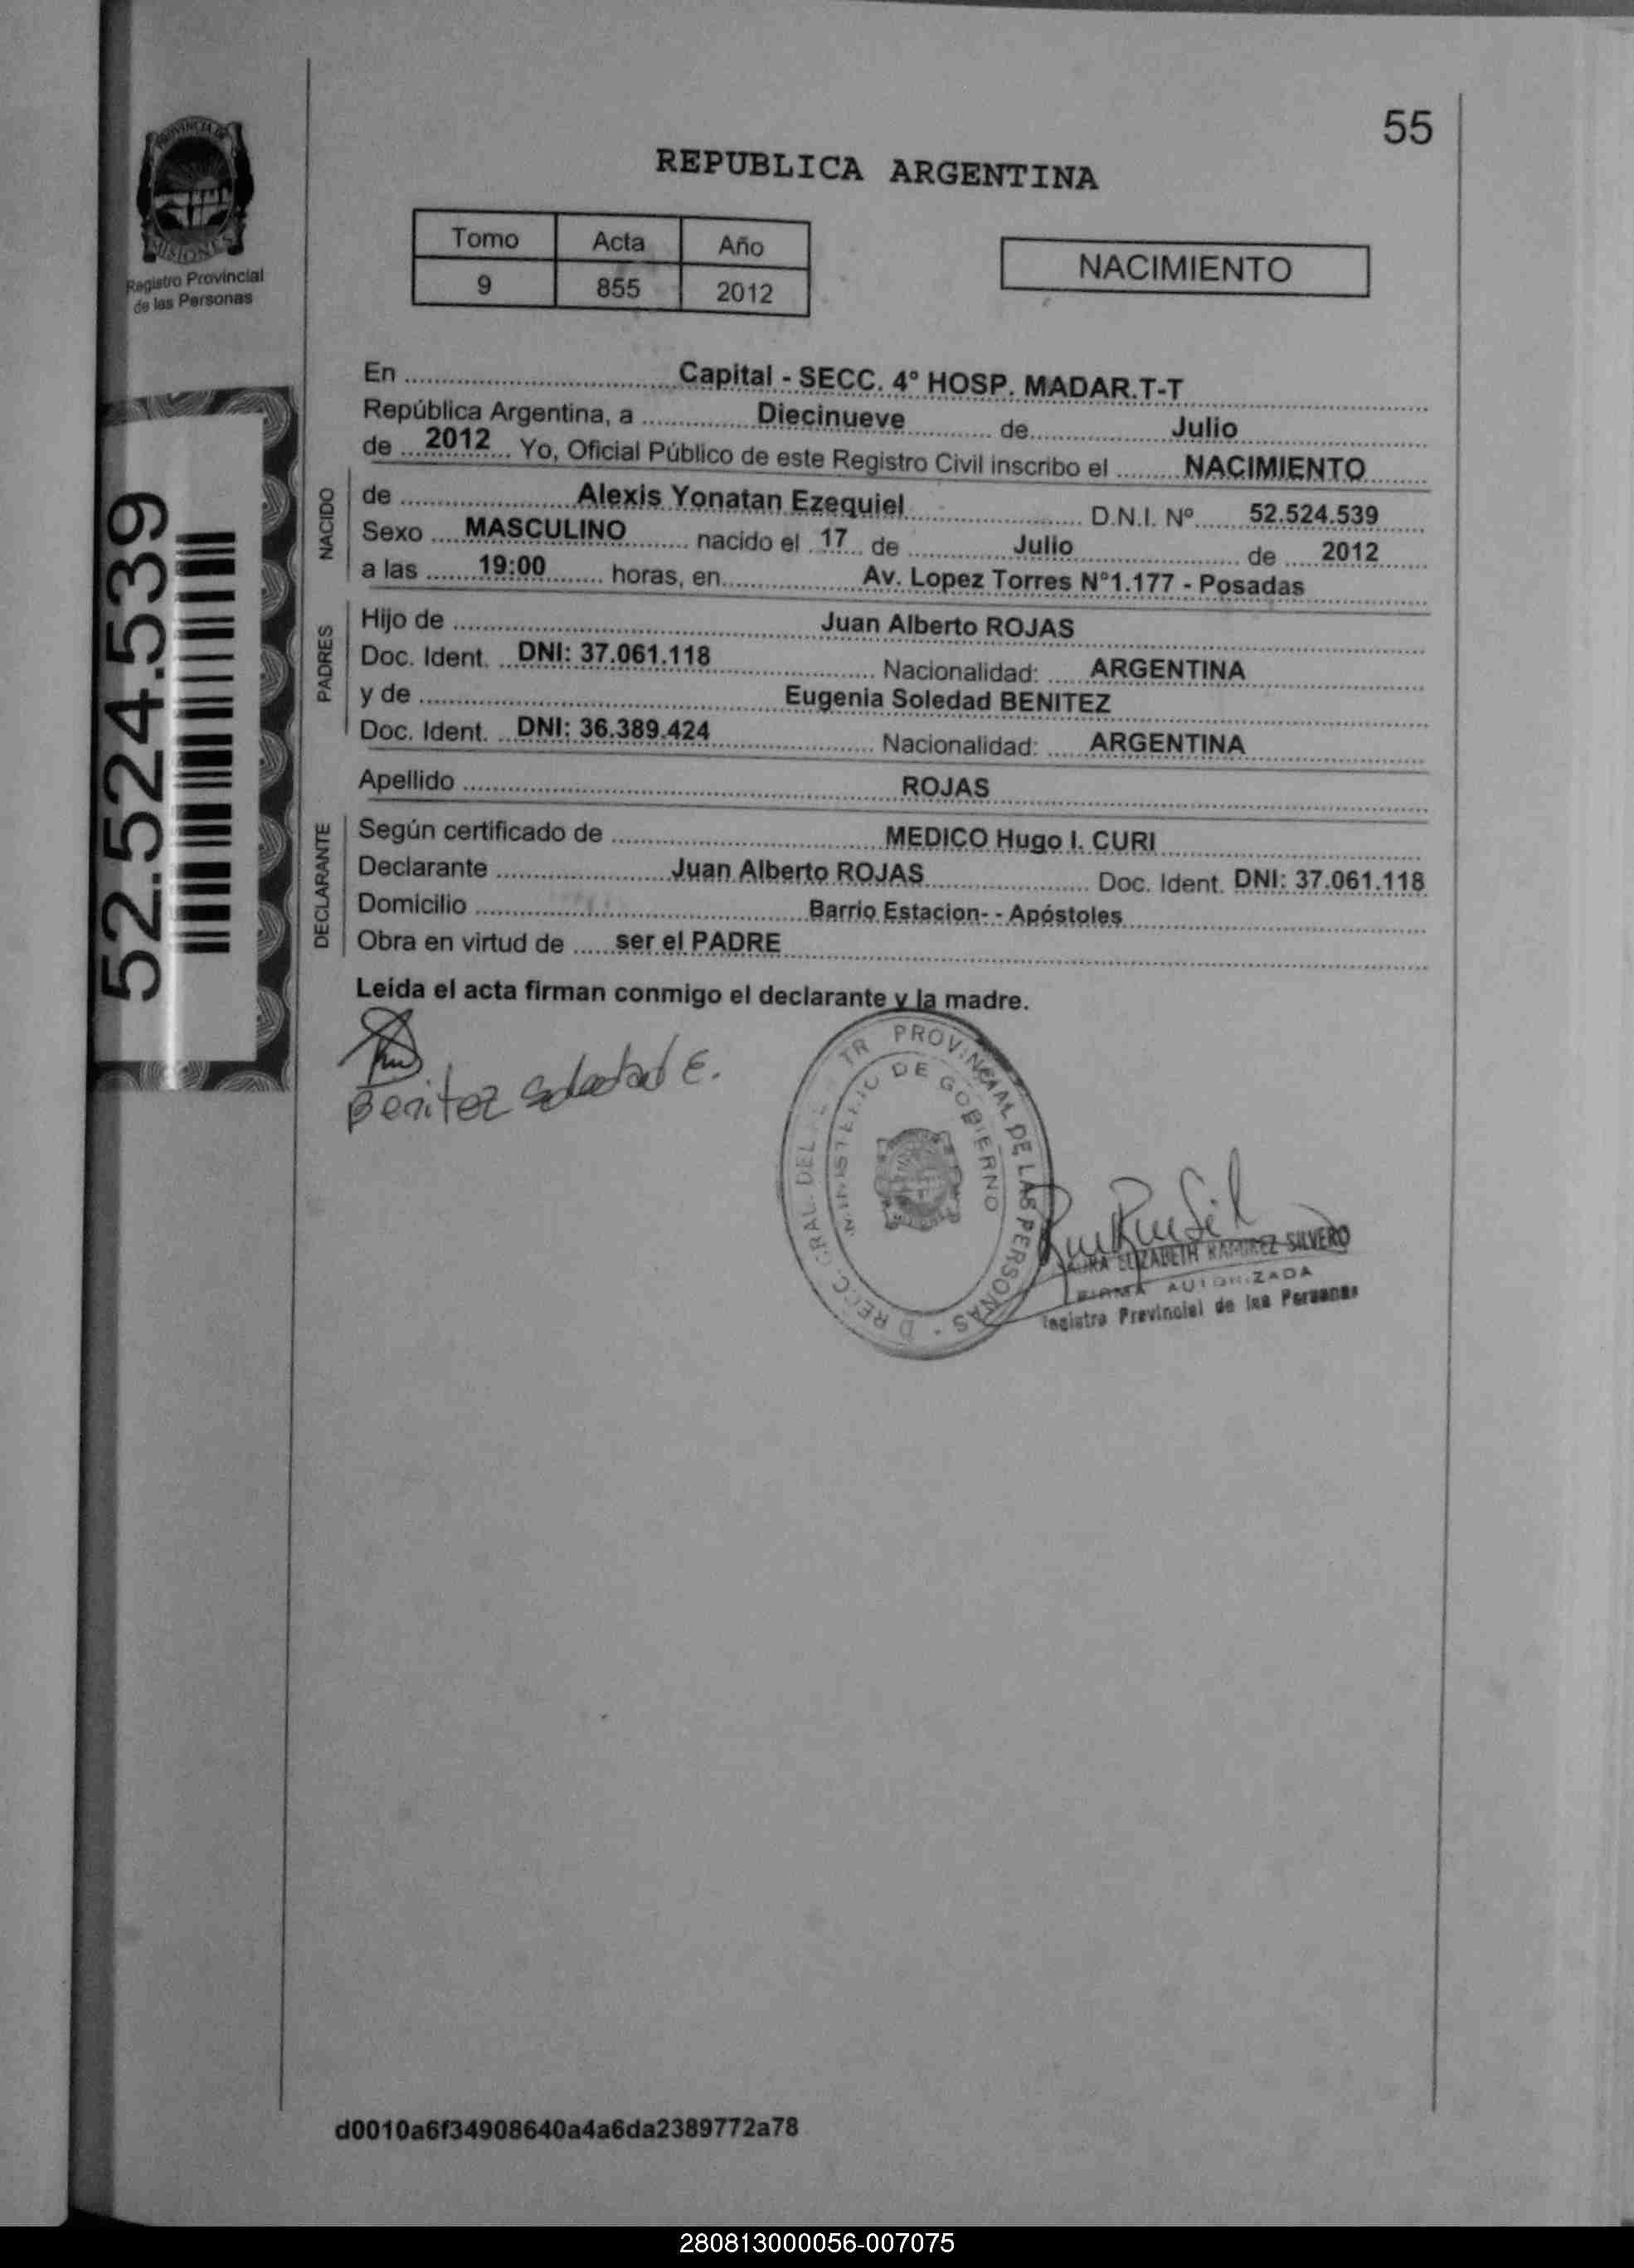 55
PROVINCIA DE
MISIONES
Registro Provincial
de las Personas
REPUBLICA ARGENTINA
Tomo Acta Año
9 855 2012
NACIMIENTO
En Capital - SECC. 4° HOSP. MADAR.T-T
República Argentina, a Diecinueve de Julio
de 2012 Yo, Oficial Público de este Registro Civil inscribo el NACIMIENTO
NACIDO
de Alexis Yonatan Ezequiel D.N.I. Nº 52.524.539
Sexo MASCULINO nacido el 17 de Julio de 2012
a las 19:00 horas, en Av. Lopez Torres N°1.177 - Posadas
PADRES
Hijo de Juan Alberto ROJAS
Doc. Ident. DNI: 37.061.118 Nacionalidad: ARGENTINA
y de Eugenia Soledad BENITEZ
Doc. Ident. DNI: 36.389.424 Nacionalidad: ARGENTINA
Apellido ROJAS
DECLARANTE
Según certificado de MEDICO Hugo I. CURI
Declarante Juan Alberto ROJAS Doc. Ident. DNI: 37.061.118
Domicilio Barrio Estacion- - Apóstoles
Obra en virtud de ser el PADRE
52.524.539
Leida el acta firman conmigo el declarante y la madre.
Benitez Soledad E.
PROVINCIAL DE LAS PERSONAS
MINISTERIO DE GOBIERNO
ELIZABETH RAMIREZ SILVERO
FIRMA AUTORIZADA
Registro Provincial de las Personas
d0010a6f34908640a4a6da2389772a78
280813000056-007075